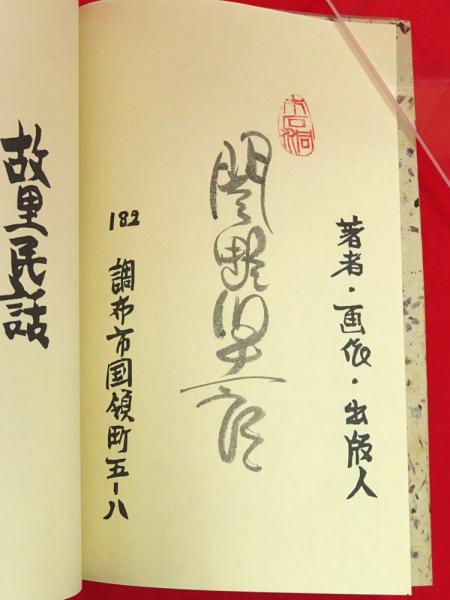 著者・画作・出版人
関野準一郎
182 調布市国領町五-八
故里民話